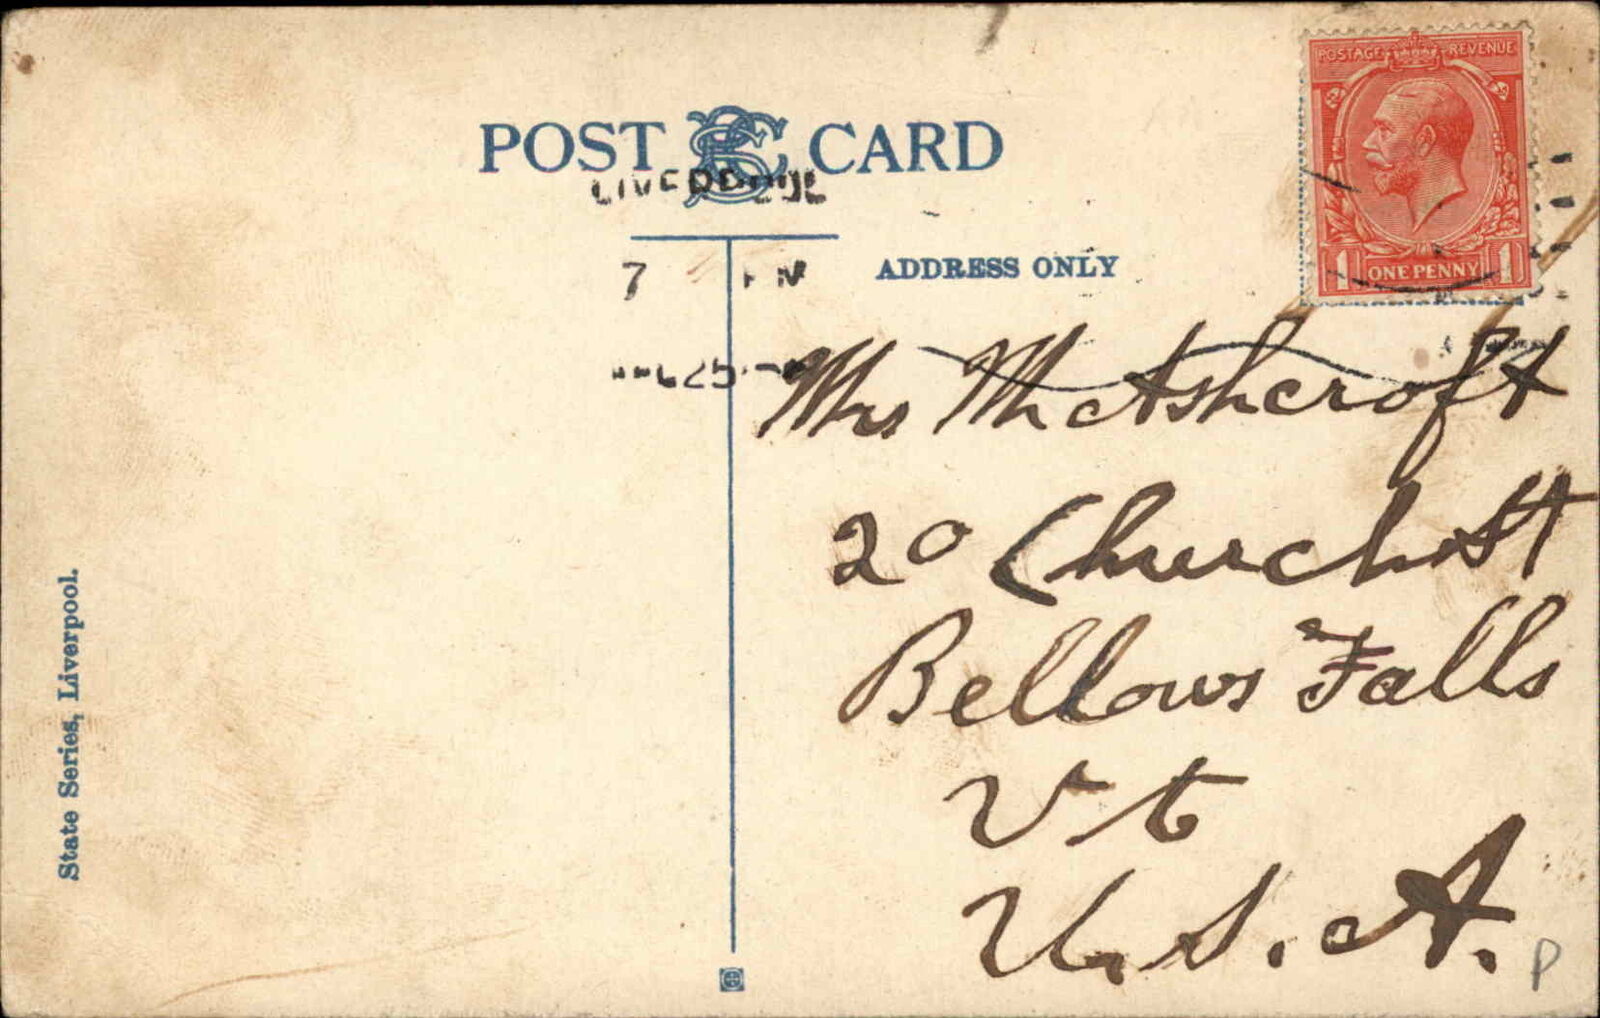 POST CARD
LIVERPOOL
7 PM
ADDRESS ONLY
POSTAGE REVENUE
1 ONE PENNY 1
Mrs M Ashcroft
20 Church St
Bellows Falls
Vt
U.S.A.
State Series, Liverpool.
P